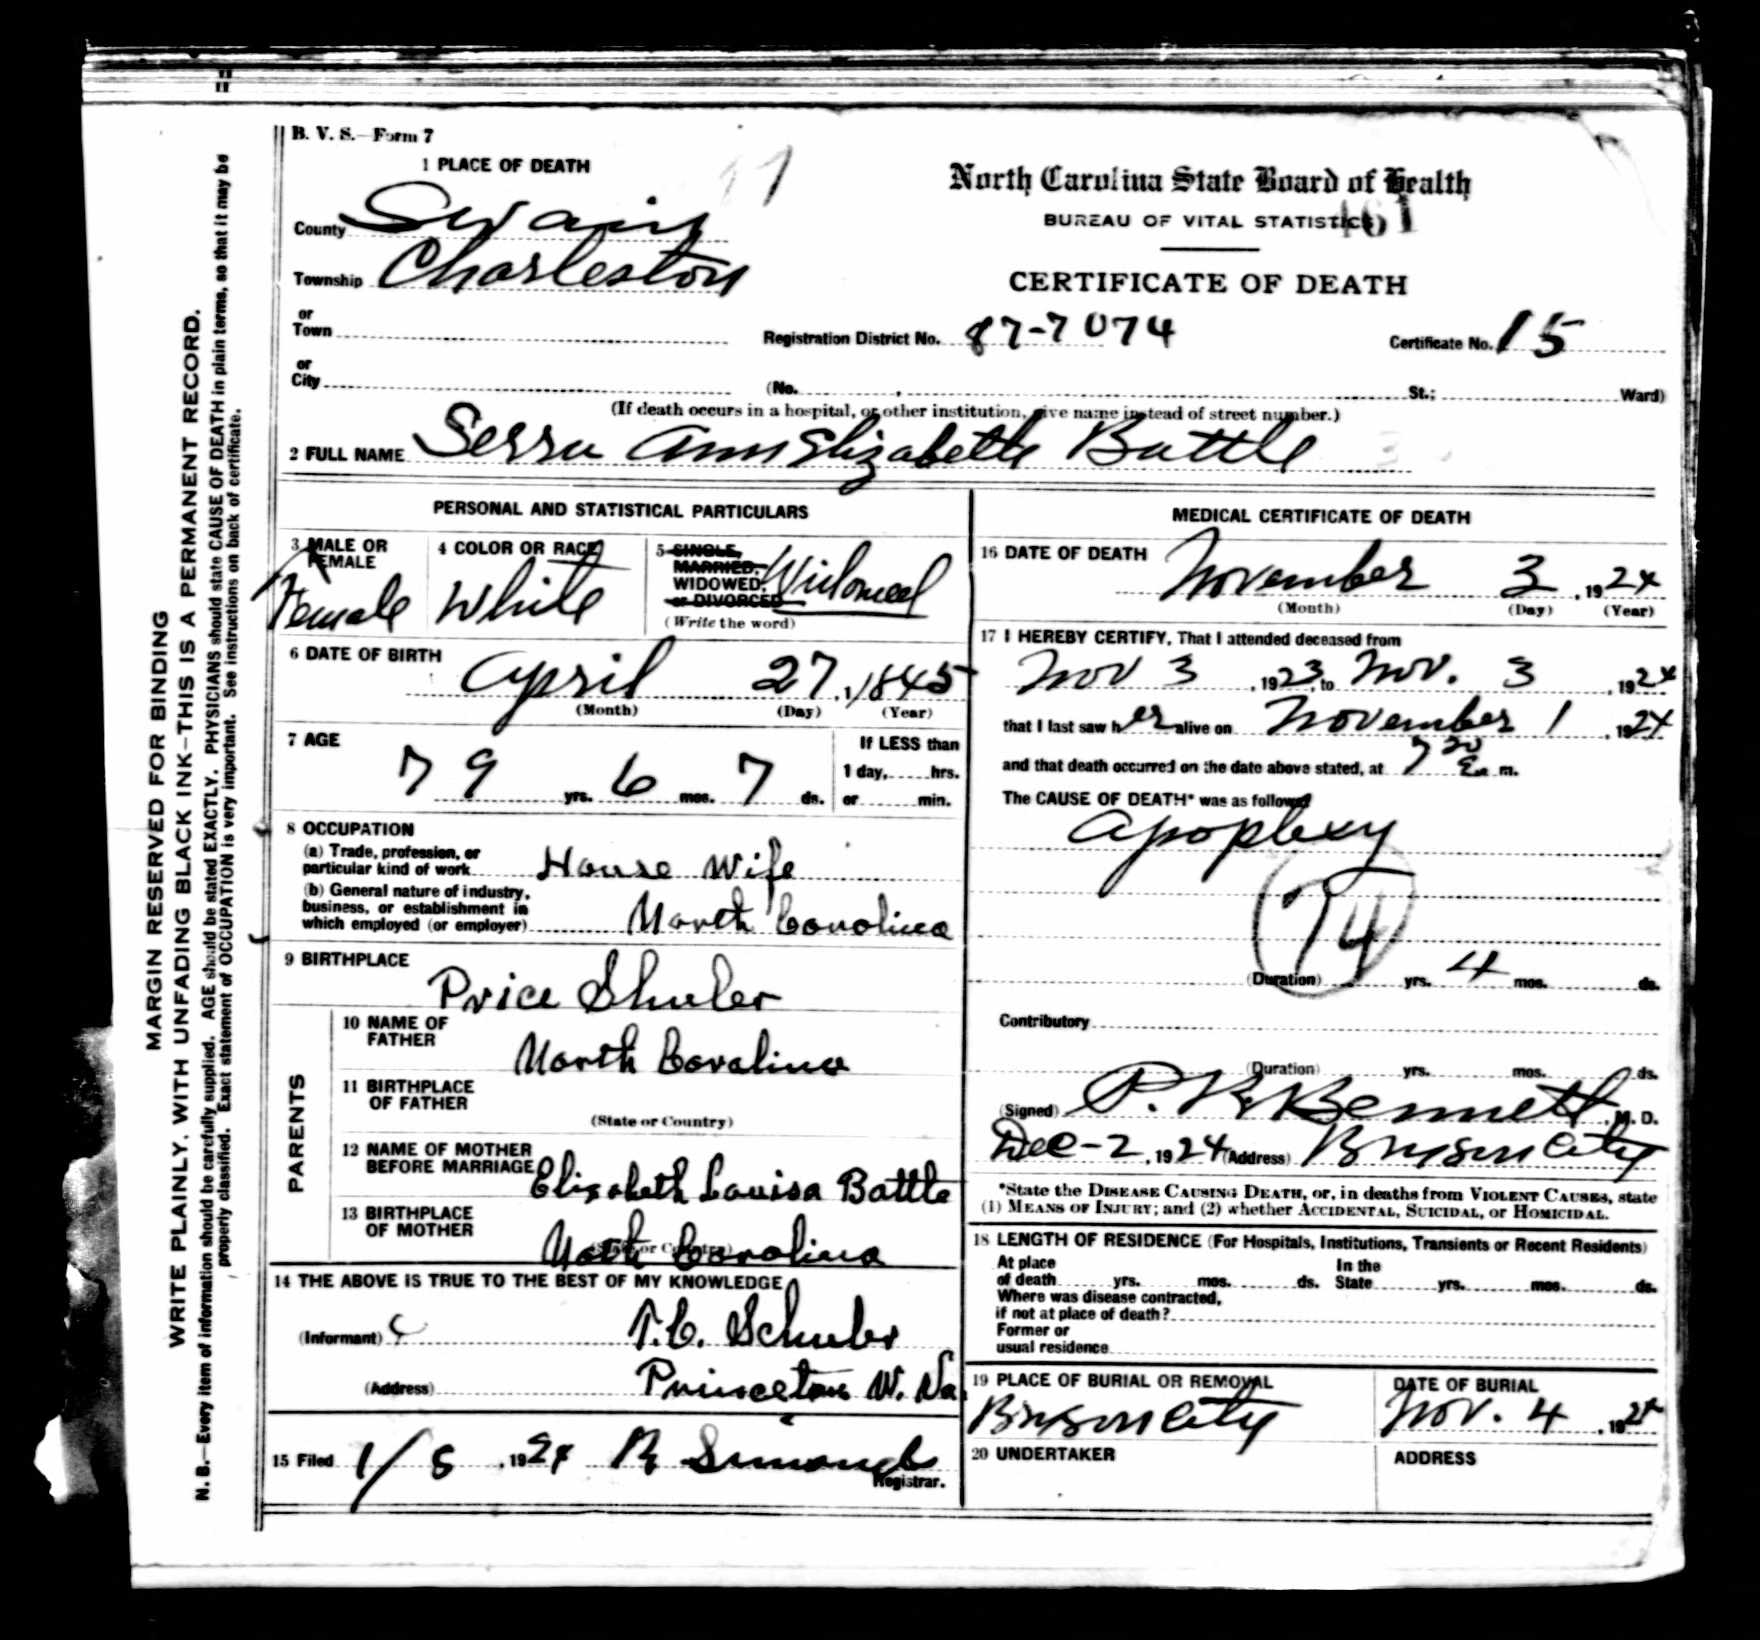 B. V. S.—Form 7
1 PLACE OF DEATH
North Carolina State Board of Health
BUREAU OF VITAL STATISTICS
461
County Swain
Township Charleston
CERTIFICATE OF DEATH
or
Town
Registration District No. 87-7074
Certificate No. 15
or
City
(No. , St.; Ward)
(If death occurs in a hospital, or other institution, give name instead of street number.)
2 FULL NAME Serra Ann Elizabeth Battle
PERSONAL AND STATISTICAL PARTICULARS
3 MALE OR
FEMALE
Female
4 COLOR OR RACE
White
5 SINGLE,
MARRIED,
WIDOWED,
or DIVORCED
Widowed
(Write the word)
6 DATE OF BIRTH
April 27, 1, 1845
(Month) (Day) (Year)
7 AGE
79 yrs. 6 mos. 7 ds.
If LESS than
1 day, hrs.
or min.
8 OCCUPATION
(a) Trade, profession, or
particular kind of work House Wife
(b) General nature of industry,
business, or establishment in
which employed (or employer) North Carolina
9 BIRTHPLACE
Price Shuler
PARENTS
10 NAME OF
FATHER
North Carolina
11 BIRTHPLACE
OF FATHER
(State or Country)
12 NAME OF MOTHER
BEFORE MARRIAGE
Elizabeth Louisa Battle
13 BIRTHPLACE
OF MOTHER
(State or Country)
North Carolina
14 THE ABOVE IS TRUE TO THE BEST OF MY KNOWLEDGE
(Informant) T.C. Schuler
(Address) Princeton W. Va.
15 Filed 1/8, 1924 Registrar.
MEDICAL CERTIFICATE OF DEATH
16 DATE OF DEATH
November 3, 1924
(Month) (Day) (Year)
17 I HEREBY CERTIFY, That I attended deceased from
Nov 3, 1923, to Nov. 3, 1924
that I last saw her alive on November 1, 1924
and that death occurred on the date above stated, at 7 m.
The CAUSE OF DEATH* was as follows:
apoplexy
74
(Duration) yrs. 4 mos. ds.
Contributory
(Duration) yrs. mos. ds.
(Signed) P. R. Bennett, M. D.
Dec-2, 1924 (Address) Bryson City
*State the DISEASE CAUSING DEATH, or, in deaths from VIOLENT CAUSES, state
(1) MEANS OF INJURY; and (2) whether ACCIDENTAL, SUICIDAL, or HOMICIDAL.
18 LENGTH OF RESIDENCE (For Hospitals, Institutions, Transients or Recent Residents)
At place
of death yrs. mos. ds.
In the
State yrs. mos. ds.
Where was disease contracted,
if not at place of death?
Former or
usual residence
19 PLACE OF BURIAL OR REMOVAL
Bryson City
DATE OF BURIAL
Nov. 4, 1924
20 UNDERTAKER
ADDRESS
MARGIN RESERVED FOR BINDING
WRITE PLAINLY, WITH UNFADING BLACK INK—THIS IS A PERMANENT RECORD.
N. B.—Every item of information should be carefully supplied. AGE should be stated EXACTLY. PHYSICIANS should state CAUSE OF DEATH in plain terms, so that it may be
properly classified. Exact statement of OCCUPATION is very important. See instructions on back of certificate.